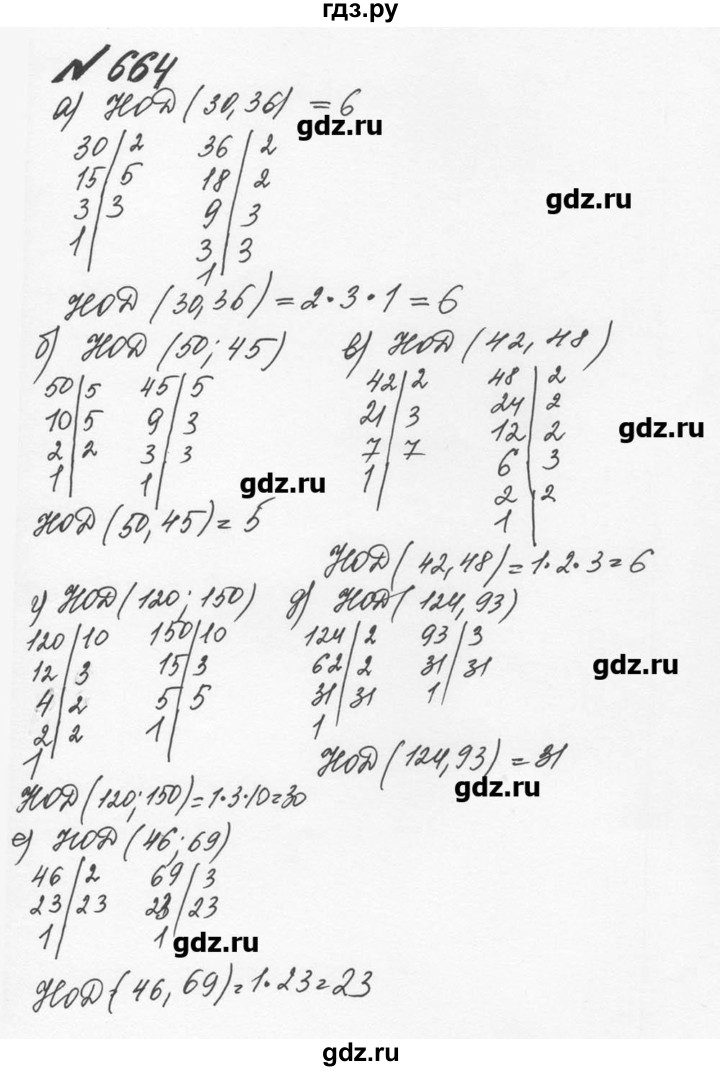 гдз.ру
№664
а) НОД (30,36) = 6
gdz.ru
30 | 2    36 | 2
15 | 5    18 | 2
gdz.ru
3 | 3    9 | 3
1 |    3 | 3
1
НОД (30,36) = 2·3·1 = 6
б) НОД (50; 45)    в) НОД (42, 48)
50 | 5    45 | 5    42 | 2    48 | 2
10 | 5    9 | 3    21 | 3    24 | 2
2 | 2    3 | 3    7 | 7    12 | 2
gdz.ru
1 |    1 |    1 |    6 | 3
gdz.ru
2 | 2
1
НОД (50,45) = 5
НОД (42,48) = 1·2·3 = 6
г) НОД (120; 150)    д) НОД (124,93)
120 | 10    150 | 10    124 | 2    93 | 3
12 | 3    15 | 3    62 | 2    31 | 31
gdz.ru
4 | 2    5 | 5    31 | 31    1 |
2 | 2    1 |    1
1
НОД (124,93) = 31
gdz.ru
НОД (120; 150) = 1·3·10 = 30
е) НОД (46; 69)
46 | 2    69 | 3
23 | 23    23 | 23
1 |    1 |
gdz.ru
НОД (46, 69) = 1·23 = 23
gdz.ru